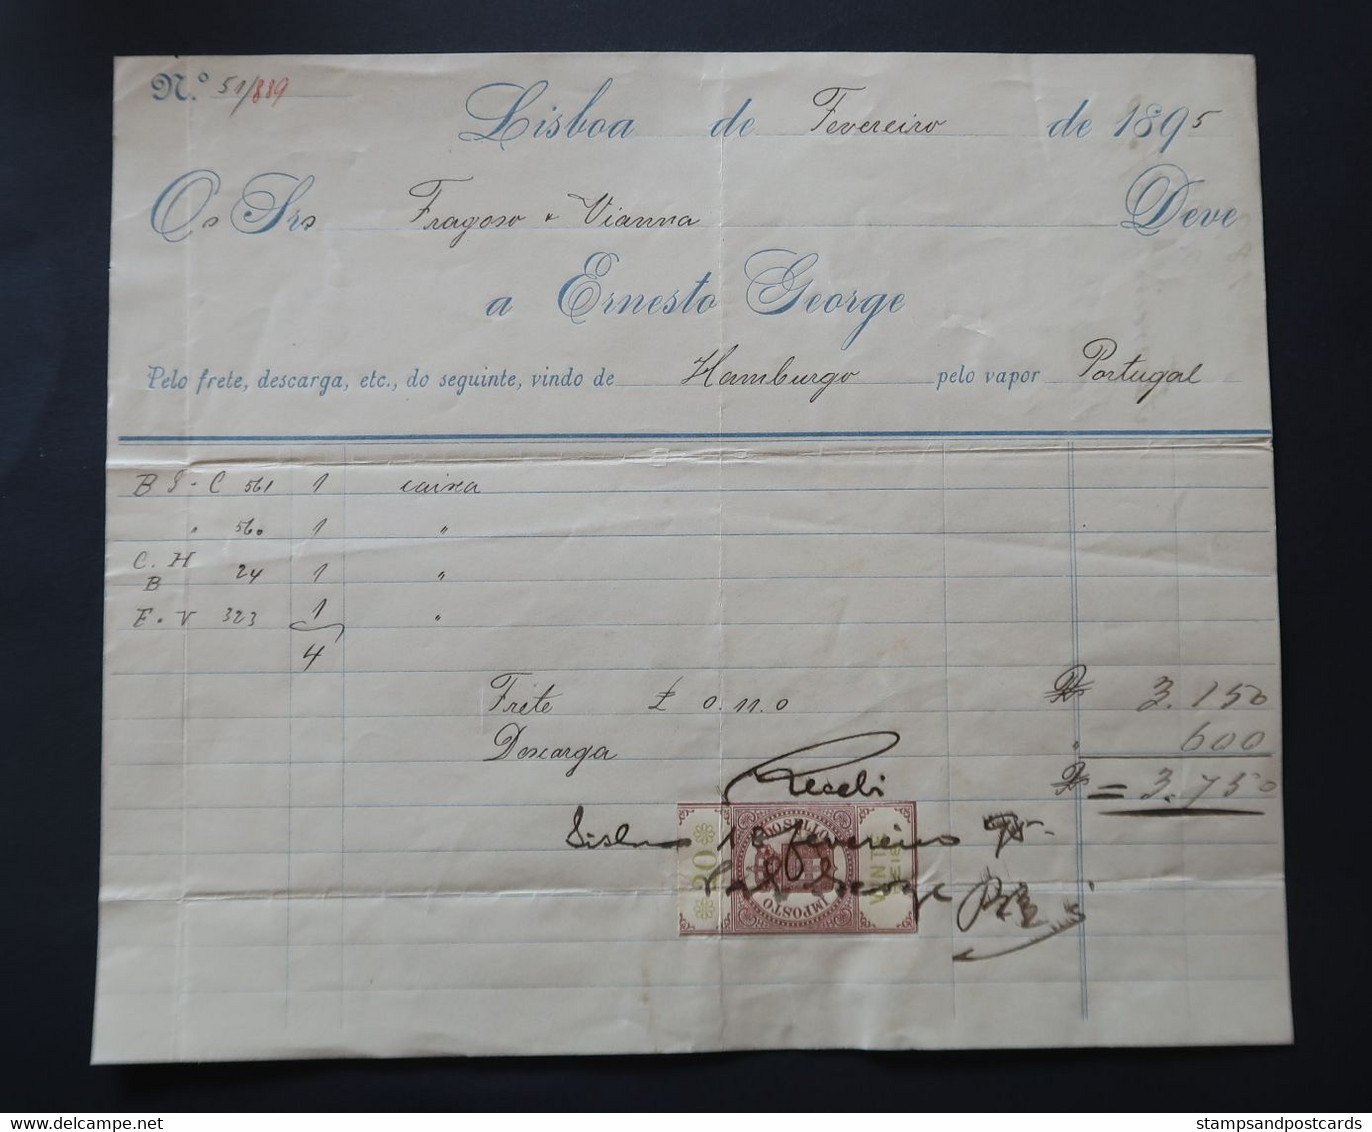 N.º 51/889
Lisboa de Fevereiro de 1895
Os Srs Fragoso & Vianna Deve
a Ernesto George
Pelo frete, descarga, etc., do seguinte, vindo de Hamburgo pelo vapor Portugal
B S - C 561 1 caixa
" 560 1 "
C. H B 24 1 "
F. V 323 1 "
4
Frete £ 0.11.0 Rs 3.150
Descarga " 600
Rs = 3.750
Recebi
Lisboa 18 fevereiro 95
George
IMPOSTO DO SELLO
20
VINTE REIS
stampsandpostcards